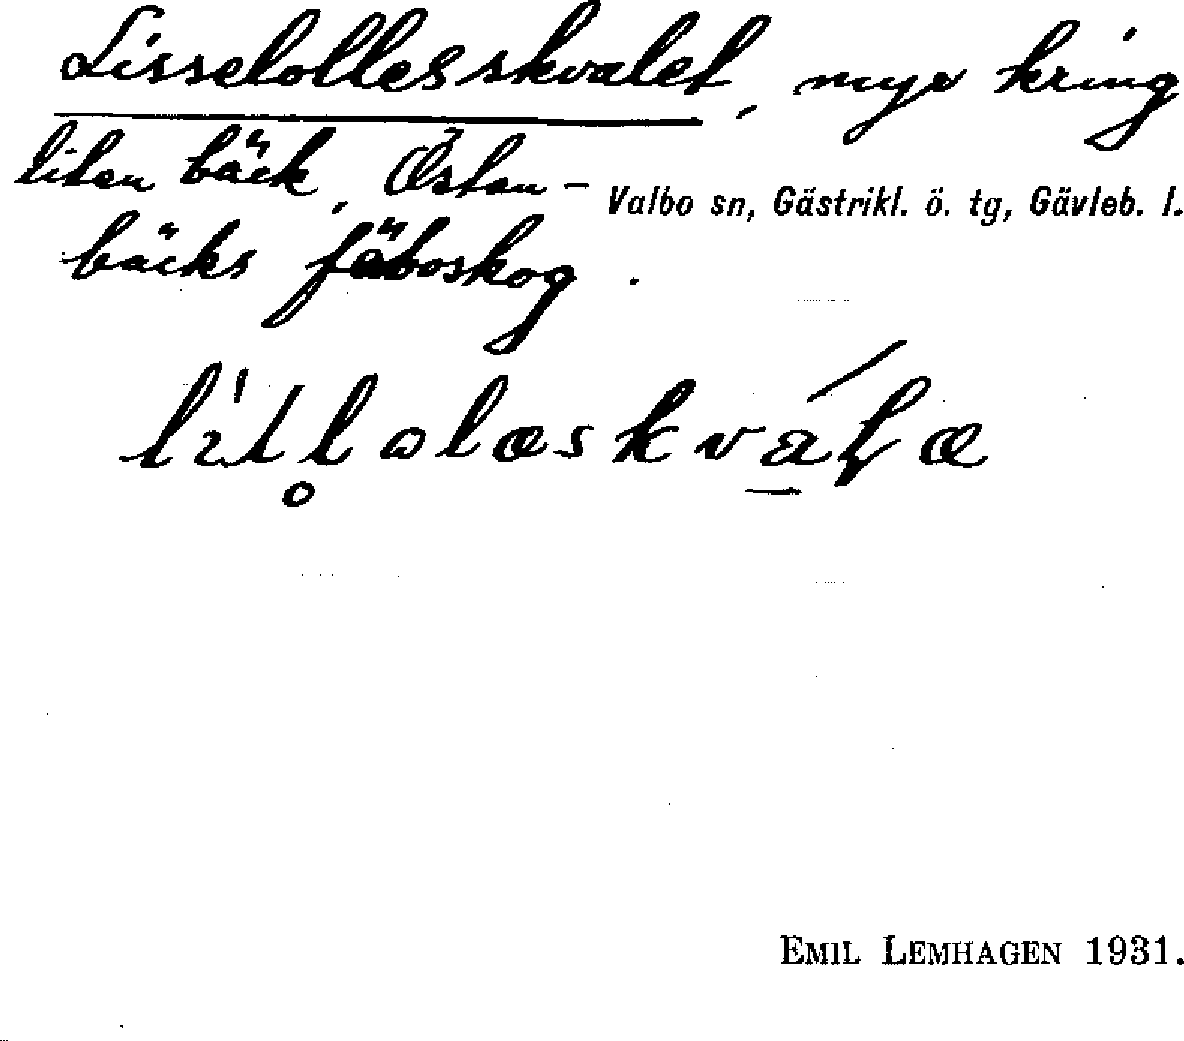 Lisselollesskvalet, myr kring
liten bäck, Östan-
Valbo sn, Gästrikl. ö. tg, Gävleb. l.
bäcks fäboskog.
EMIL LEMHAGEN 1931.